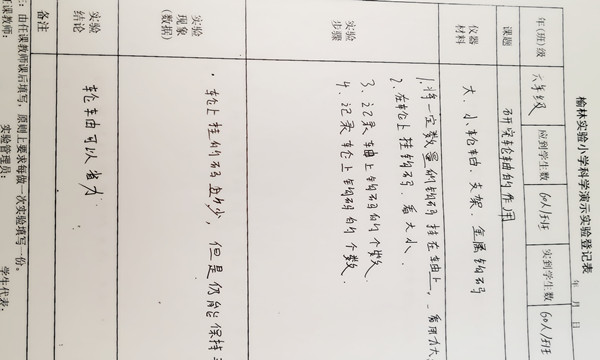 榆林实验小学科学演示实验登记表
年 月 日
年(班)级 六年级 应到学生数 60人/班 实到学生数 60人/班
课题 研究轮轴的作用
仪器材料 大、小轮轴、支架、金属钩码
实验步骤
1.将一定数量的钩码挂在轴上,
2.在轮上挂钩码.看大小.
3.记录轴上钩码的个数
4.记录轮上钩码的个数.
实验现象(数据) 轮上挂的钩码 少,但是仍能保持
实验结论 轮轴可以省力
备注
由任课教师课后填写,原则上要求每做一次实验填写一份。
任课教师: 实验管理员: 学生代表: